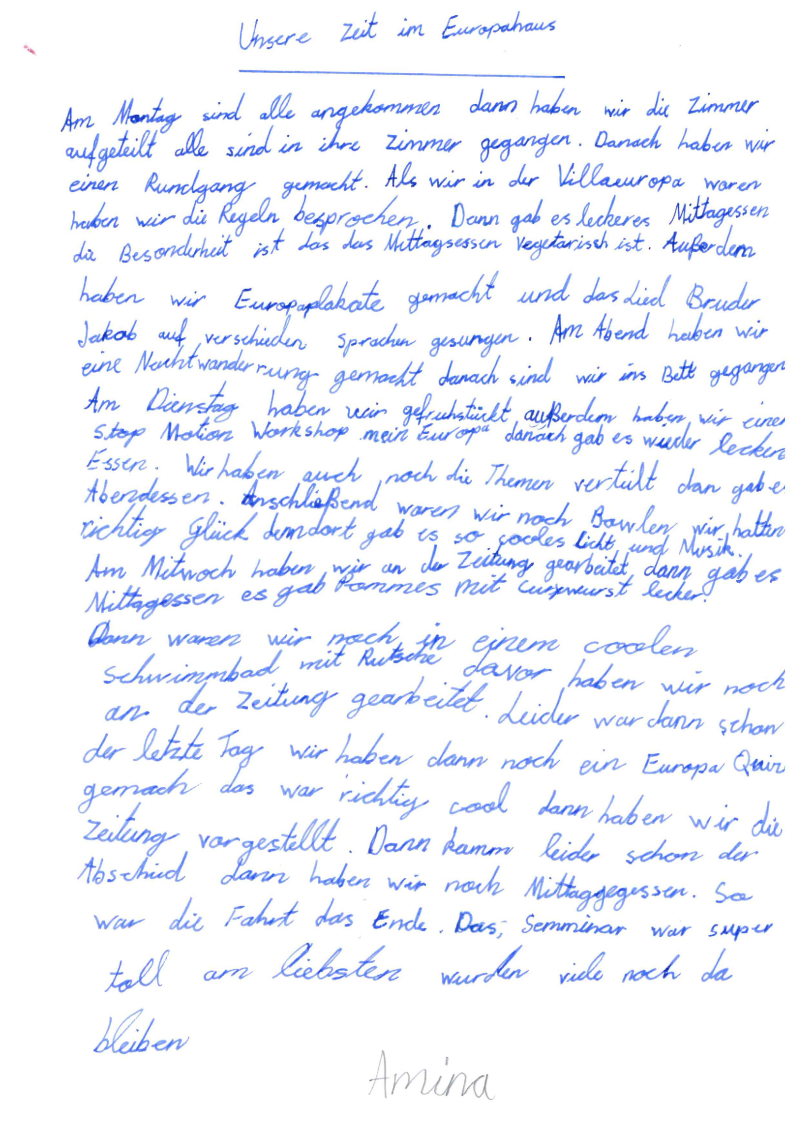 Unsere Zeit im Europahaus
Am Montag sind alle angekommen dann haben wir die Zimmer
aufgeteilt alle sind in ihre Zimmer gegangen. Danach haben wir
einen Rundgang gemacht. Als wir in der Villaeuropa waren
haben wir die Regeln besprochen. Dann gab es leckeres Mittagessen
die Besonderheit ist das das Mittagsessen vegetarisch ist. Außerdem
haben wir Europaplakate gemacht und das Lied Bruder
Jakob auf verschieden sprachen gesungen. Am Abend haben wir
eine Nachtwanderrung gemacht danach sind wir ins Bett gegangen
Am Dienstag haben wir gefruhstückt außerdem haben wir einen
Stop Motion Workshop mein Europa danach gab es wieder lecken
Essen. Wir haben auch noch die Themen verteilt dan gab e
Abendessen. Anschließend waren wir noch Bowlen wir hatten
richtig Glück denn dort gab es so cooles Licht und Musik.
Am Mitwoch haben wir an der Zeitung gearbeitet dann gab es
Mittagessen es gab Pommes mit Currywurst lecker!
Dann waren wir noch in einem coolen
schwimmbad mit Rutsche davor haben wir noch
an der Zeitung gearbeitet. Leider war dann schon
der letzte Tag wir haben dann noch ein Europa Quiz
gemach das war richtig cool dann haben wir die
Zeitung vorgestellt. Dann kamm leider schon der
Abschied dann haben wir noch Mittaggegessen. So
war die Fahrt das Ende. Das, Semminar war super
toll am liebsten wurden viele noch da
bleiben
Amina